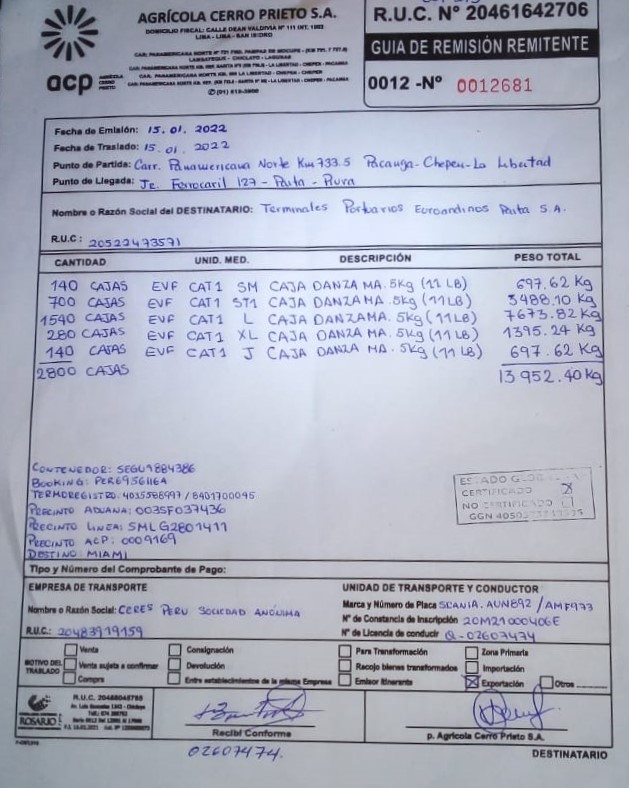 AGRÍCOLA CERRO PRIETO S.A.
DOMICILIO FISCAL: CALLE DEAN VALDIVIA Nº 111 INT. 1003
LIMA - LIMA - SAN ISIDRO
acp AGRÍCOLA CERRO PRIETO
R.U.C. Nº 20461642706
GUIA DE REMISIÓN REMITENTE
0012 -Nº 0012681
Fecha de Emisión: 15.01.2022
Fecha de Traslado: 15.01.2022
Punto de Partida: Carr. Panamericana Norte Km 733.5 Pacanga-Chepen-La Libertad
Punto de Llegada: Jr. Ferrocaril 127 - Paita - Piura
Nombre o Razón Social del DESTINATARIO: Terminales Portuarios Euroandinos Paita S.A.
R.U.C: 20522473571
CANTIDAD UNID. MED. DESCRIPCIÓN PESO TOTAL
140 CAJAS EVF CAT1 SM CAJA DANZA MA. 5Kg (11 LB) 697.62 Kg
700 CAJAS EVF CAT1 ST1 CAJA DANZA MA. 5Kg (11 LB) 3488.10 Kg
1540 CAJAS EVF CAT1 L CAJA DANZA MA. 5Kg (11 LB) 7673.82 Kg
280 CAJAS EVF CAT1 XL CAJA DANZA MA. 5Kg (11 LB) 1395.24 Kg
140 CAJAS EVF CAT1 J CAJA DANZA MA. 5Kg (11 LB) 697.62 Kg
2800 CAJAS 13 952.40 Kg
CONTENEDOR: SEGU9884386
BOOKING: PER6956116A
TERMOREGISTRO: 4035588997 / 8401700045
PRECINTO ADUANA: 003SF037436
PRECINTO LINEA: SMLG2801411
PRECINTO ACP: 0009169
DESTINO: MIAMI
ESTADO
CERTIFICADO X
NO CERTIFICADO
GGN
Tipo y Número del Comprobante de Pago:
EMPRESA DE TRANSPORTE
Nombre o Razón Social: CERES PERU SOCIEDAD ANÓNIMA
R.U.C.: 20483919159
UNIDAD DE TRANSPORTE Y CONDUCTOR
Marca y Número de Placa SCANIA. AUN892 / AMF973
Nº de Constancia de Inscripción 20M21000406E
Nº de Licencia de conducir Q-02607474
MOTIVO DEL TRASLADO
Venta
Venta sujeta a confirmar
Compra
Consignación
Devolución
Entre establecimientos de la misma Empresa
Para Transformación
Recojo bienes transformados
Emisor Itinerante
Zona Primaria
Importación
X Exportación
Otros
ROSARIO
Recibí Conforme
02607474.
p. Agrícola Cerro Prieto S.A.
DESTINATARIO